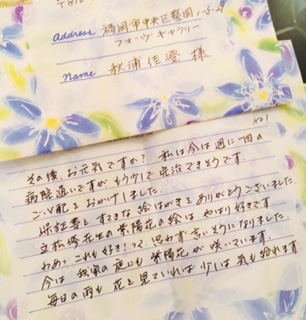 Address 福岡市中央区警固1-5-29
フォーヴァ ギャラリー
Name 秋浦佳澄 様
No.1
その後、お元気ですか？ 私は今は週に1回の
病院通いですが もう少しで完治できそうです。
ご心配を おかけしました。
保証書と すてきな 絵はがきと ありがとうございました。
立松脩 花生の紫陽花の絵は やはり好きです
わあっ これも好き！って 思わず 言いそうになりました。
今は 我家の庭にも 紫陽花が 咲いています。
毎日の雨も 花を見ていれば 少しは 気も晴れます